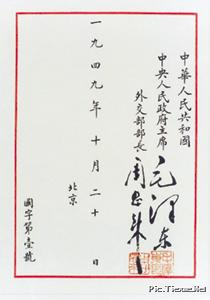 中華人民共和國
中央人民政府主席
毛澤東
外交部部長
周恩來
一九四九年十月二十日
北京
國字第壹號